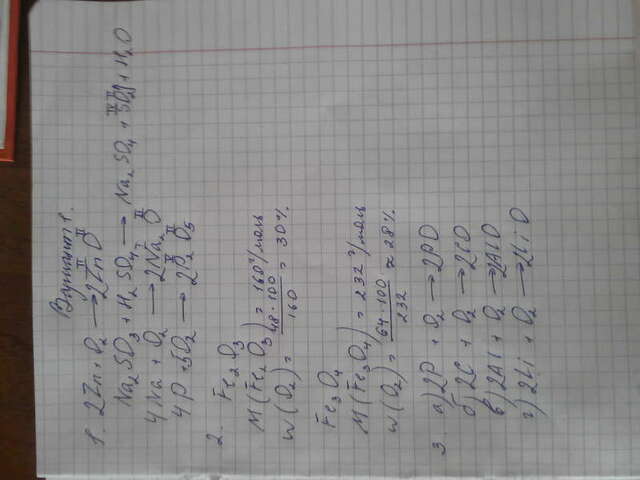 Вариант 1.
1. 2Zn + O₂ ⟶ 2Zn^II O^II
Na₂SO₃ + H₂SO₄ ⟶ Na₂SO₄ + SO₂ + H₂O
4Na + O₂ ⟶ 2Na₂O^II
4P + 5O₂ ⟶ 2P₂^V O₅^II
2. Fe₂O₃
M(Fe₂O₃) = 160 г/моль
w(O₂) = 48·100 / 160 = 30%
Fe₃O₄
M(Fe₃O₄) = 232 г/моль
w(O₂) = 64·100 / 232 ≈ 28%
3. а) 2P + O₂ ⟶ 2PO
б) 2C + O₂ ⟶ 2CO
в) 2Al + O₂ ⟶ 2AlO
г) 2Li + O₂ ⟶ 2LiO